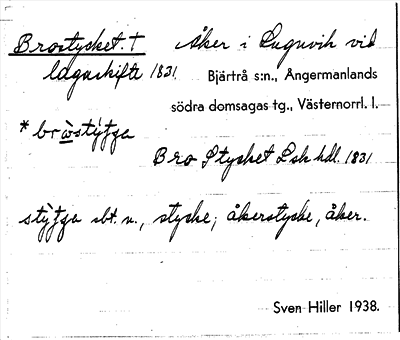 Brostycket. † Åker i Lugnvik vid
lagaskifte 1831. Bjärtrå s:n., Ångermanlands
södra domsagas tg., Västernorrl. l.
* bròstýʄʄa
Bro Stycket Lsk hdl. 1831
stýʄʄa sbt. n., stycke; åkerstycke, åker.
Sven Hiller 1938.